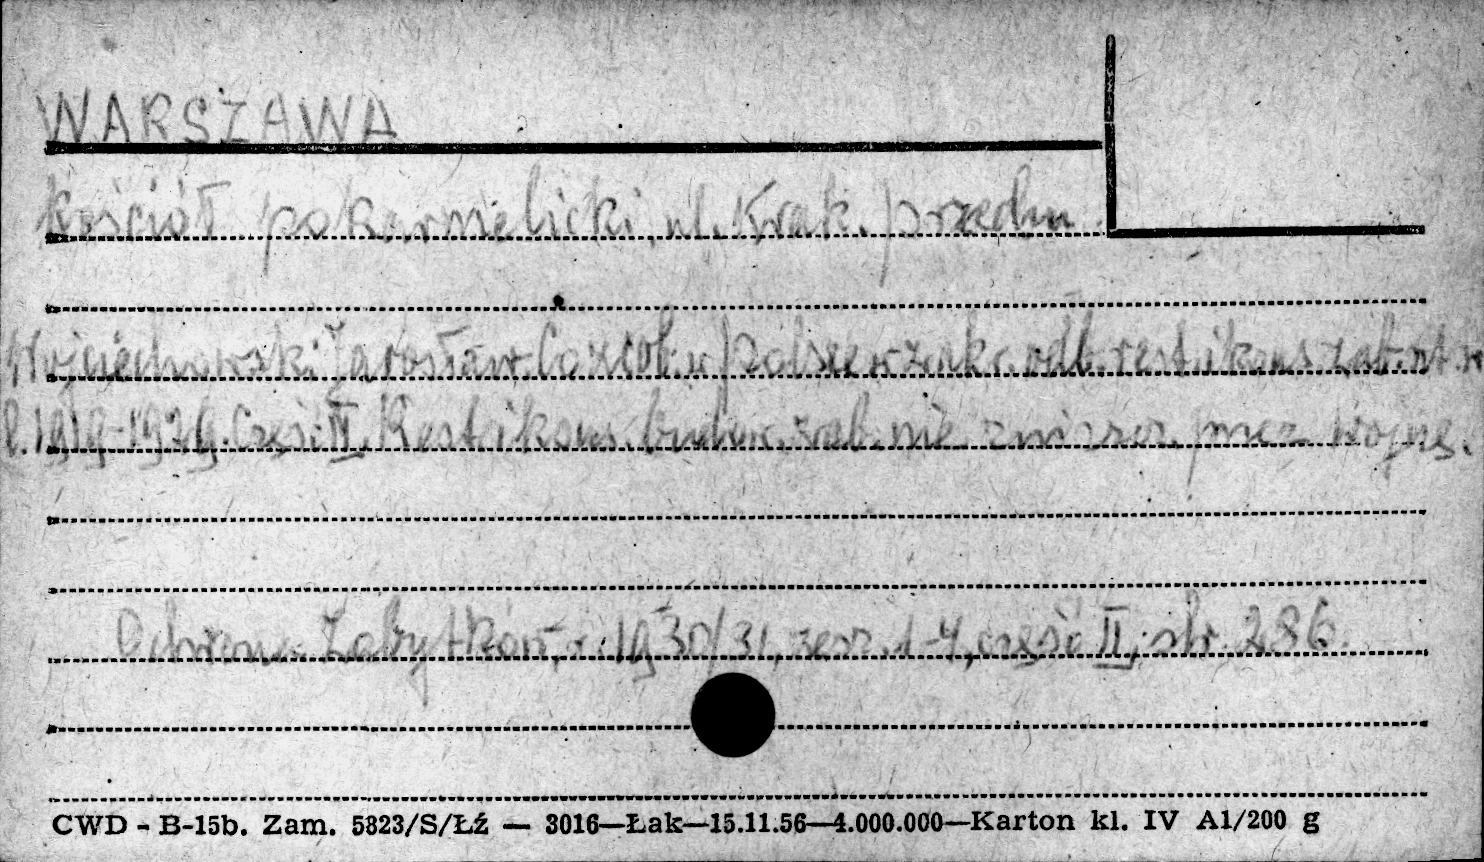 WARSZAWA
kościół pokarmelicki, ul. Krak. przedm
Wojciechowski Jarosław. Co zrob. w Polsce w zakr. odb. rest. i kons. zab. szt. w
l. 1919-1929. Część II. Rest. i kons. budow. zab. nie zniszcz. przez wojnę.
Ochrona Zabytków, r. 1930/31, zesz. 1-4, część II, str. 286
CWD - B-15b. Zam. 5823/S/Łź — 3016—Łak—15.11.56—4.000.000—Karton kl. IV A1/200 g